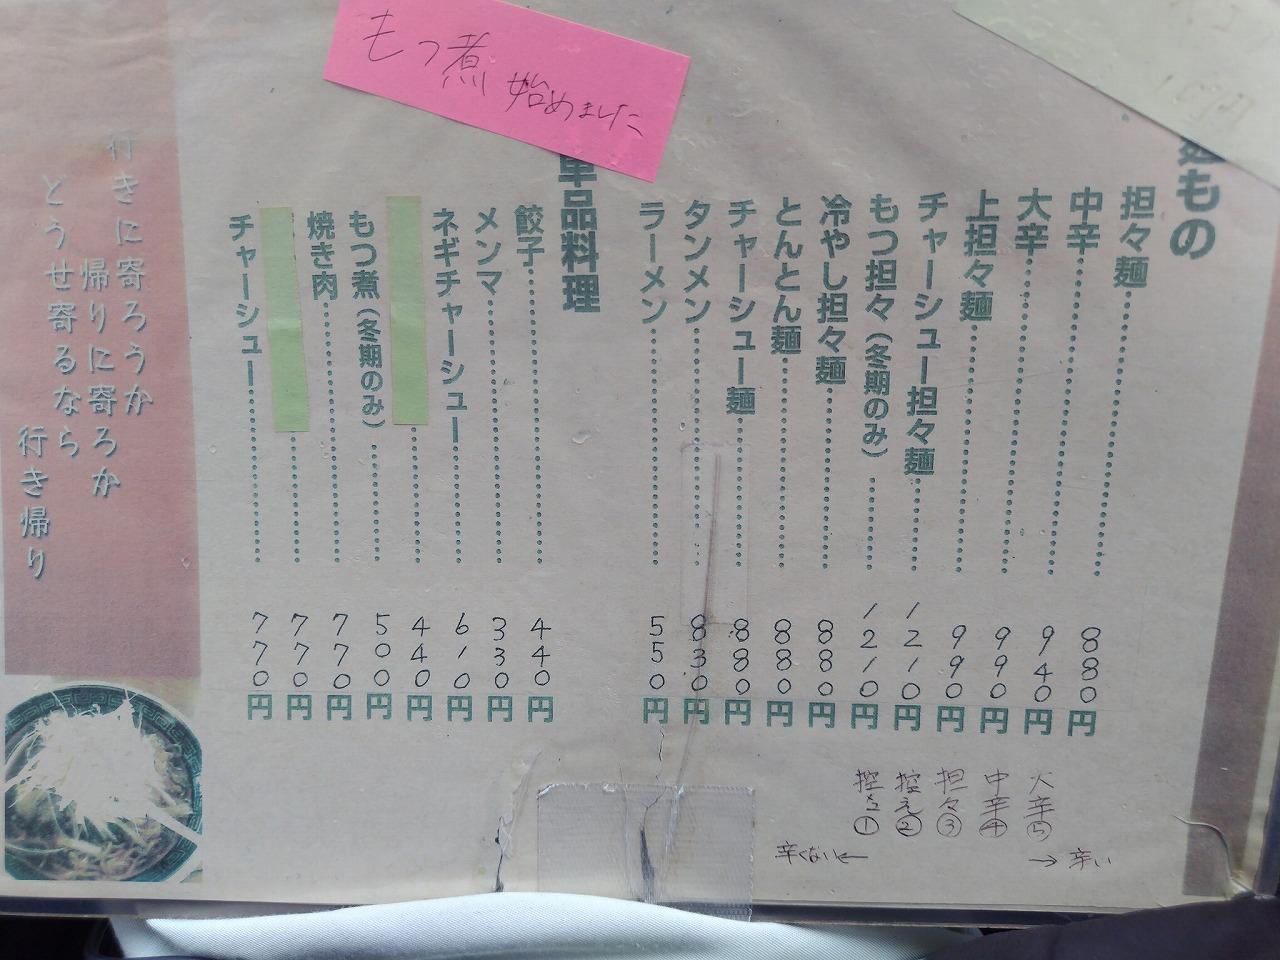 もつ煮
始めました
麺もの
担々麺 880円
中辛 940円
大辛 990円
上担々麺 990円
チャーシュー担々麺 1210円
もつ担々（冬期のみ） 1210円
冷やし担々麺 880円
とんとん麺 880円
チャーシュー麺 880円
タンメン 830円
ラーメン 550円
大辛⑤
中辛④
担々③
控え②
控え①
辛くない←
→辛い
単品料理
餃子 440円
メンマ 330円
ネギチャーシュー 610円
440円
もつ煮（冬期のみ） 500円
焼き肉 770円
770円
チャーシュー 770円
行きに寄ろうか
帰りに寄ろか
どうせ寄るなら
行き帰り